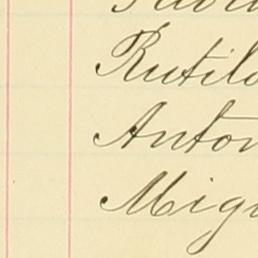 Rutilo
Anton
Migu